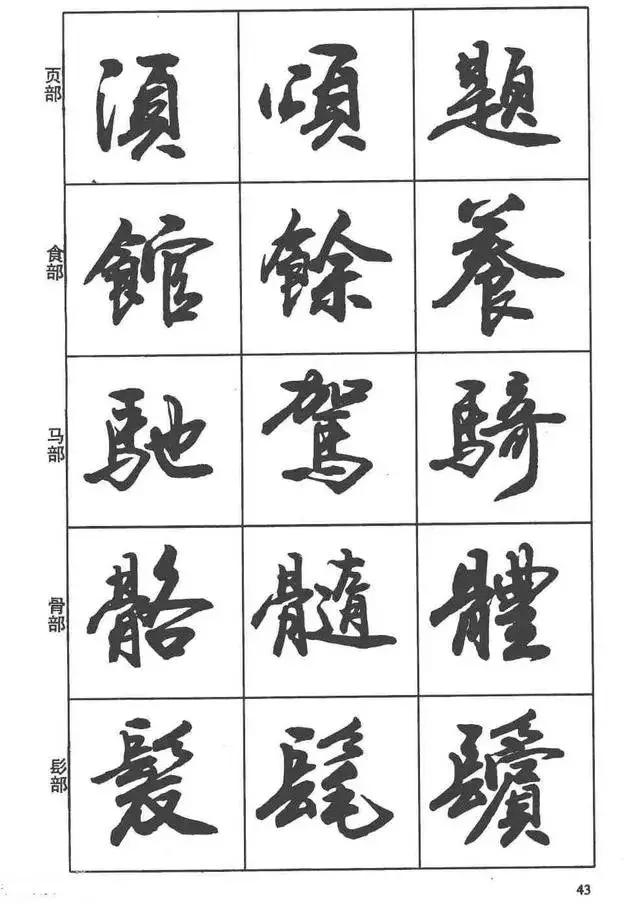 页部 須 頌 題
食部 館 餘 養
马部 馳 駕 騎
骨部 骼 髓 體
髟部 髮 髦 鬢
43